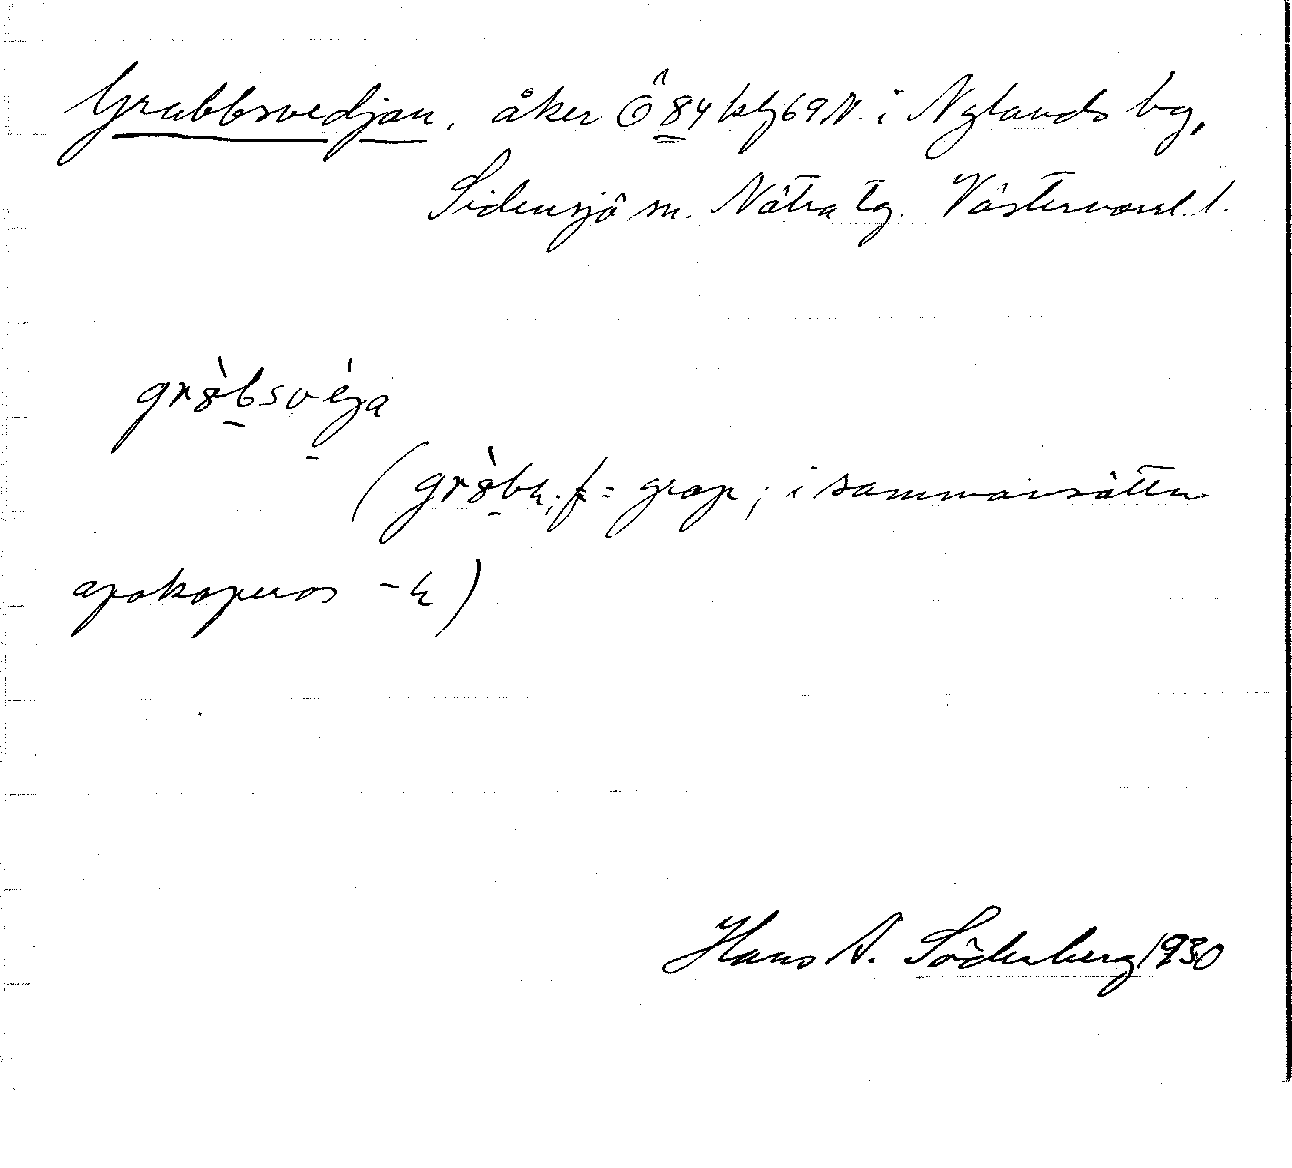 Grubbsvedjan, åker Ö 84 klj 69 N. i Nylands by,
Sidensjö sn. Nätra tg. Västernorrl. l.
gròbsvéja
(gròbä, f = grop; i sammansättn
apokoperas -ä)
Hans A. Söderberg 1930